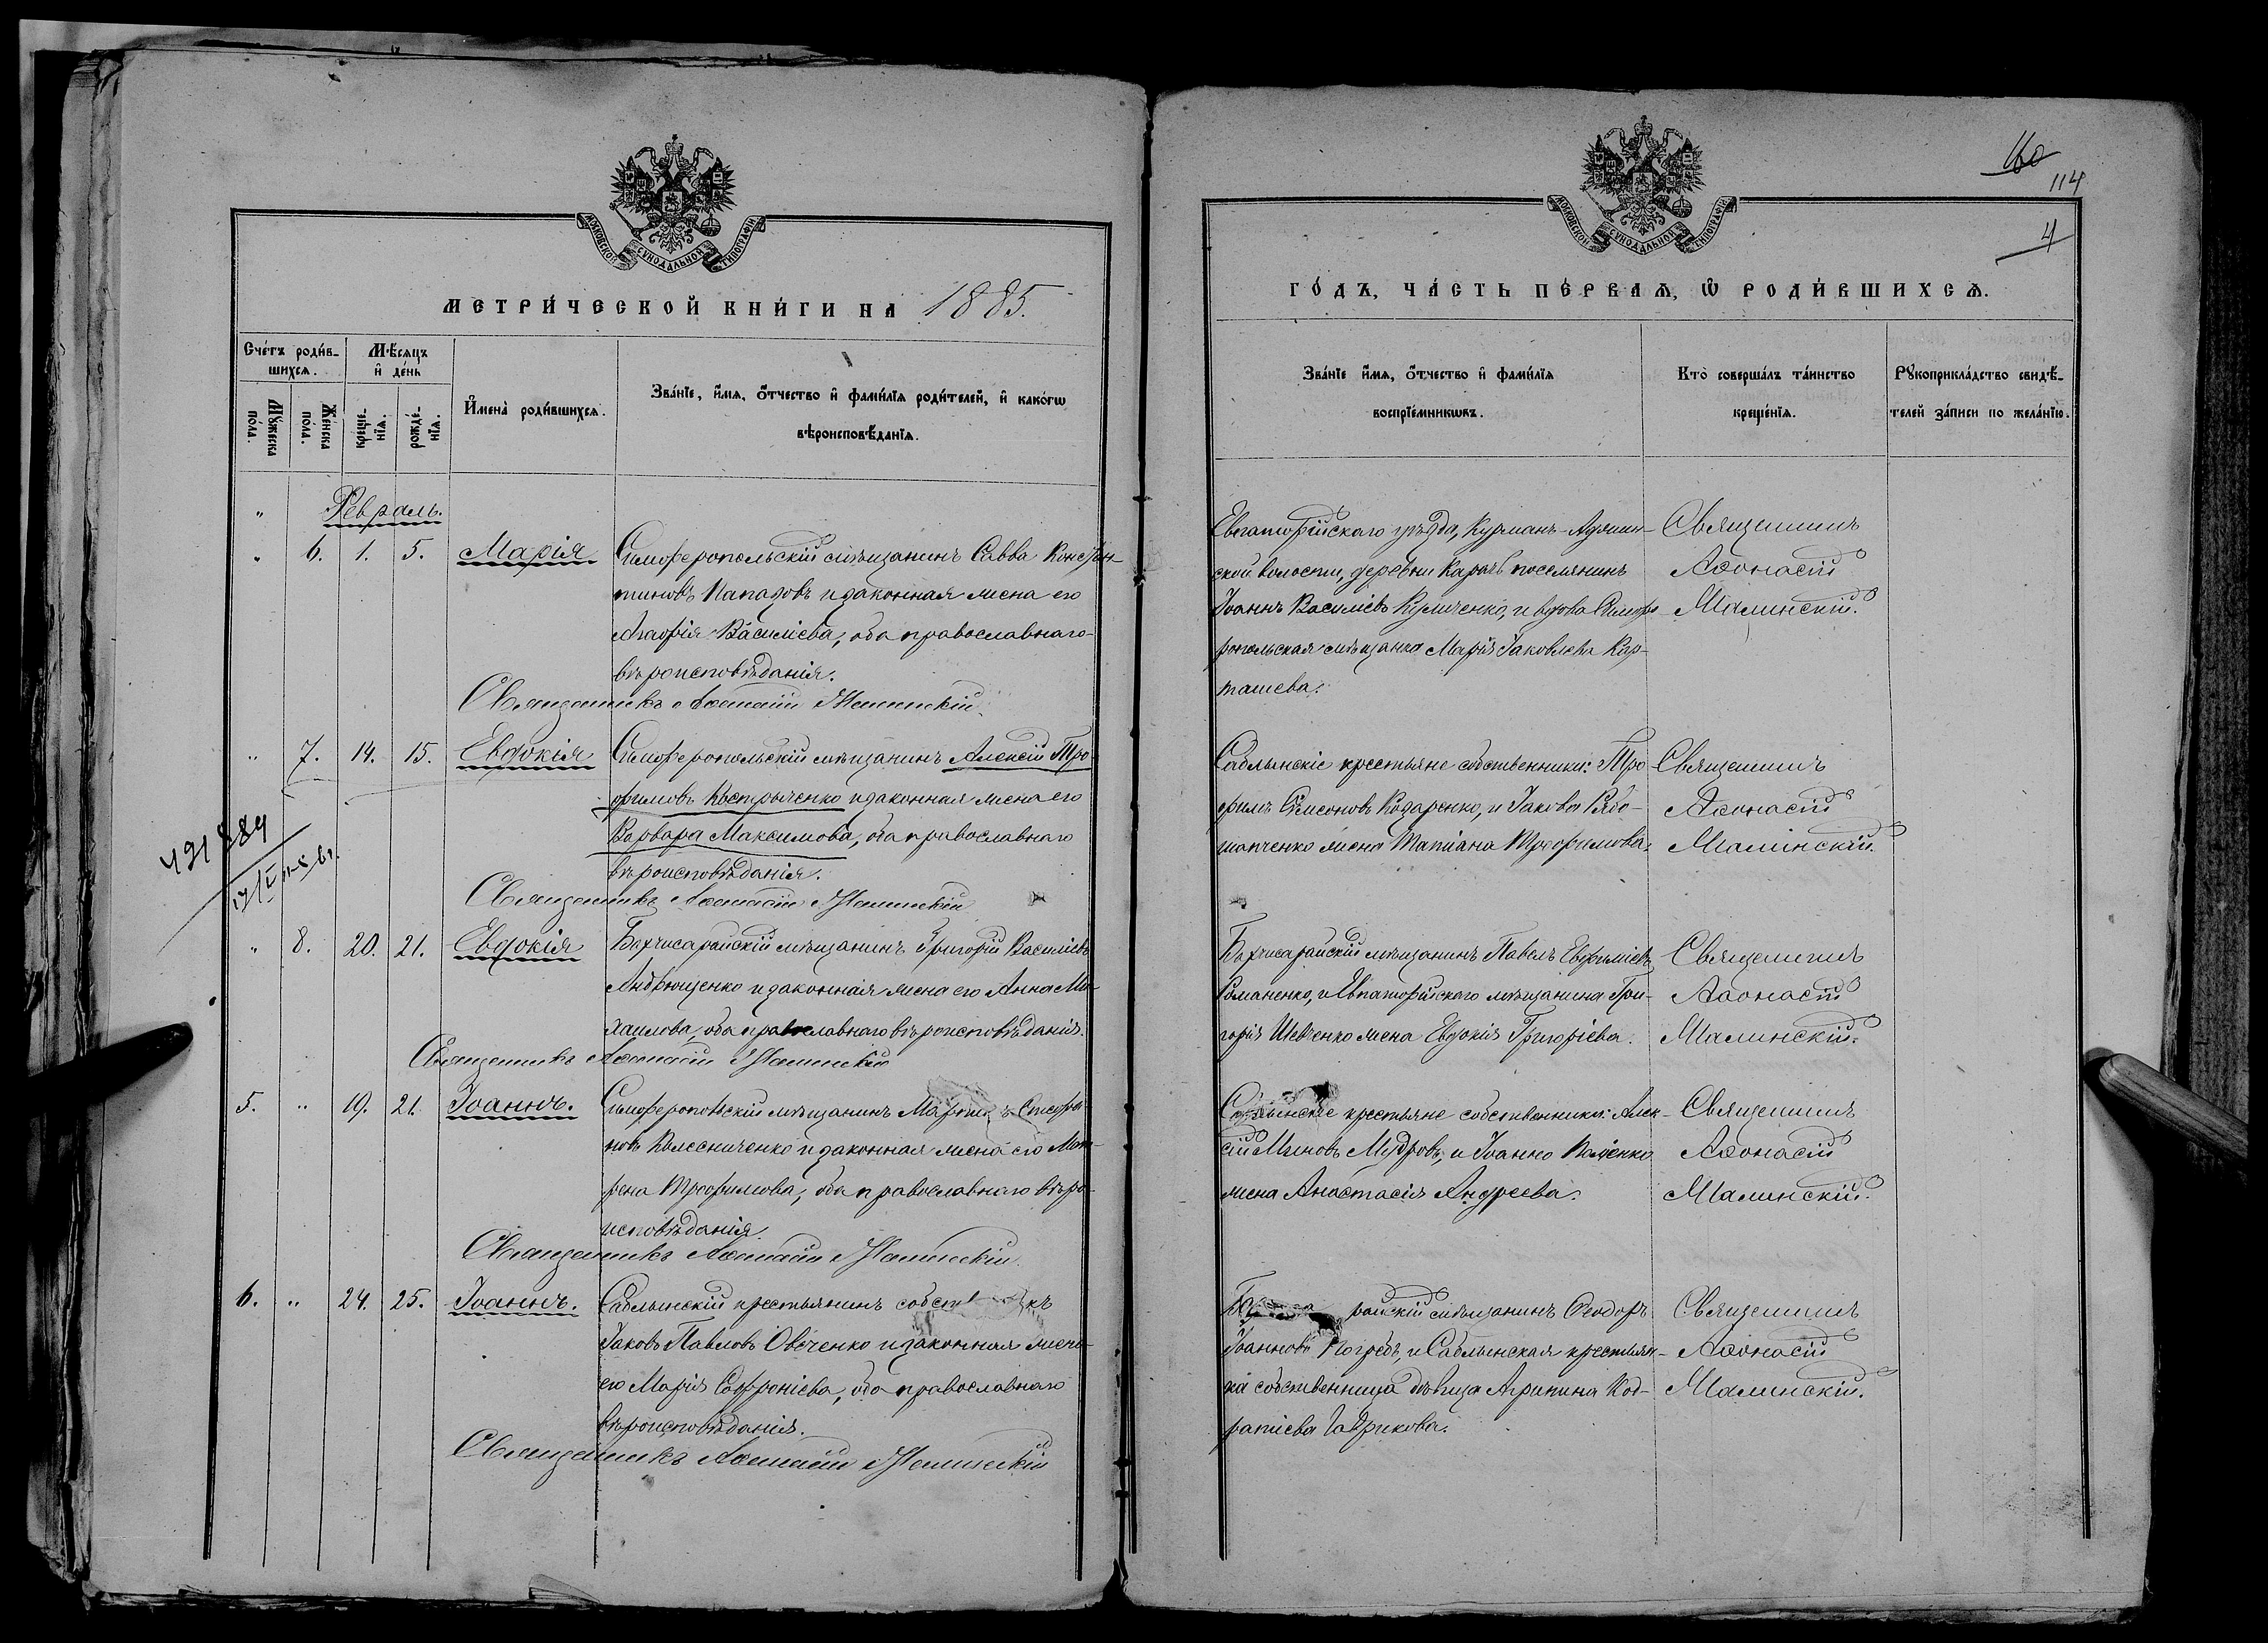 МОСКОВСКОЙ СѴНОДАЛЬНОЙ ТИПОГРАФІИ
МЕТРИ́ЧЕСКОЙ КНИ́ГИ НА 1885.
Сче́тъ роди́в-
шихсѧ.
Мѣ́сѧцъ
и҆ де́нь
Мꙋ́жеска
по́ла.
Же́нска
по́ла.
креще́-
нїѧ.
рожде́-
нїѧ.
И҆мена̀ роди́вшихсѧ.
Зва́нїе, и҆́мѧ, ѻ҆́тчество и҆ фами́лїѧ роди́телей, и҆ како́гѡ
вѣроисповѣ́данїѧ.
" Февраль.
" 6. 1. 5. Марія Симферопольскій мѣщанинъ Савва Констан-
тиновъ Пападовъ и законная жена его
Агафія Васильева, оба православнаго
вѣроисповѣданія.
Священникъ Аѳонасій Малинскій
" 7. 14. 15. Евдокія Симферопольскій мѣщанинъ Алексій Тро-
фимовъ Костыченко и законная жена его
Варвара Максимова, оба православнаго
вѣроисповѣданія.
Священникъ Аѳонасій Малинскій
" 8. 20. 21. Евдокія Бахчисарайскій мѣщанинъ Григорій Василіевъ
Андрющенко и законная жена его Анна Ми-
хаилова, оба православнаго вѣроисповѣданія.
Священникъ Аѳонасій Малинскій
5. " 19. 21. Іоаннъ. Симферопольскій мѣщанинъ Стефа-
новъ Колесниченко и законная жена его Мат-
рена Трофимова, оба православнаго вѣро-
исповѣданія.
Священникъ Аѳонасій Малинскій
6. " 24. 25. Іоаннъ. Саблынскій крестьянинъ
Іаковъ Павловъ Овченко и законная жена
его Марія Софроніева, оба православнаго
вѣроисповѣданія.
Священникъ Аѳонасій Малинскій
114
4
МОСКОВСКОЙ СѴНОДАЛЬНОЙ ТИПОГРАФІИ
ГО́ДЪ, ЧА́СТЬ ПЕ́РВАѦ, Ѡ҆ РОДИ́ВШИХСѦ.
Зва́нїе и҆́мѧ, ѻ҆́тчество и҆ фами́лїѧ
воспрїе́мникѡвъ.
Кто̀ соверша́лъ та́инство
креще́нїѧ.
Рꙋкоприкла́дство свидѣ́-
телей за́писи по жела́нїю.
Евпаторійскаго уѣзда, Курманъ-Аджи-
ской волости, деревни Карачъ поселянинъ
Іоаннъ Василіевъ Куличенко, и вдова Симфе-
ропольская мѣщанка Марія Іаковлева Кар-
ташева.
Священникъ
Аѳонасій
Малинскій.
Саблынскіе крестьяне собственники: Тро-
фимъ Симеоновъ Козаренко, и Іакова Рябо-
шапченко жена Татіана Трофимова.
Священникъ
Аѳонасій
Малинскій.
Бахчисарайскій мѣщанинъ Павелъ Евфиміевъ
Романенко, и Евпаторійскаго мѣщанина Гри-
горія Шевченко жена Евдокія Григоріева.
Священникъ
Аѳонасій
Малинскій.
Саблынскіе крестьяне собственники: Алек-
сій Миновъ Мудровъ, и Іоанна
жена Анастасія Андреева.
Священникъ
Аѳонасій
Малинскій.
райскій мѣщанинъ Ѳеодоръ
Іоанновъ Погребъ, и Саблынская крестьян-
ка собственница дѣвица Агрипина Код-
ратіева Гаврикова.
Священникъ
Аѳонасій
Малинскій.